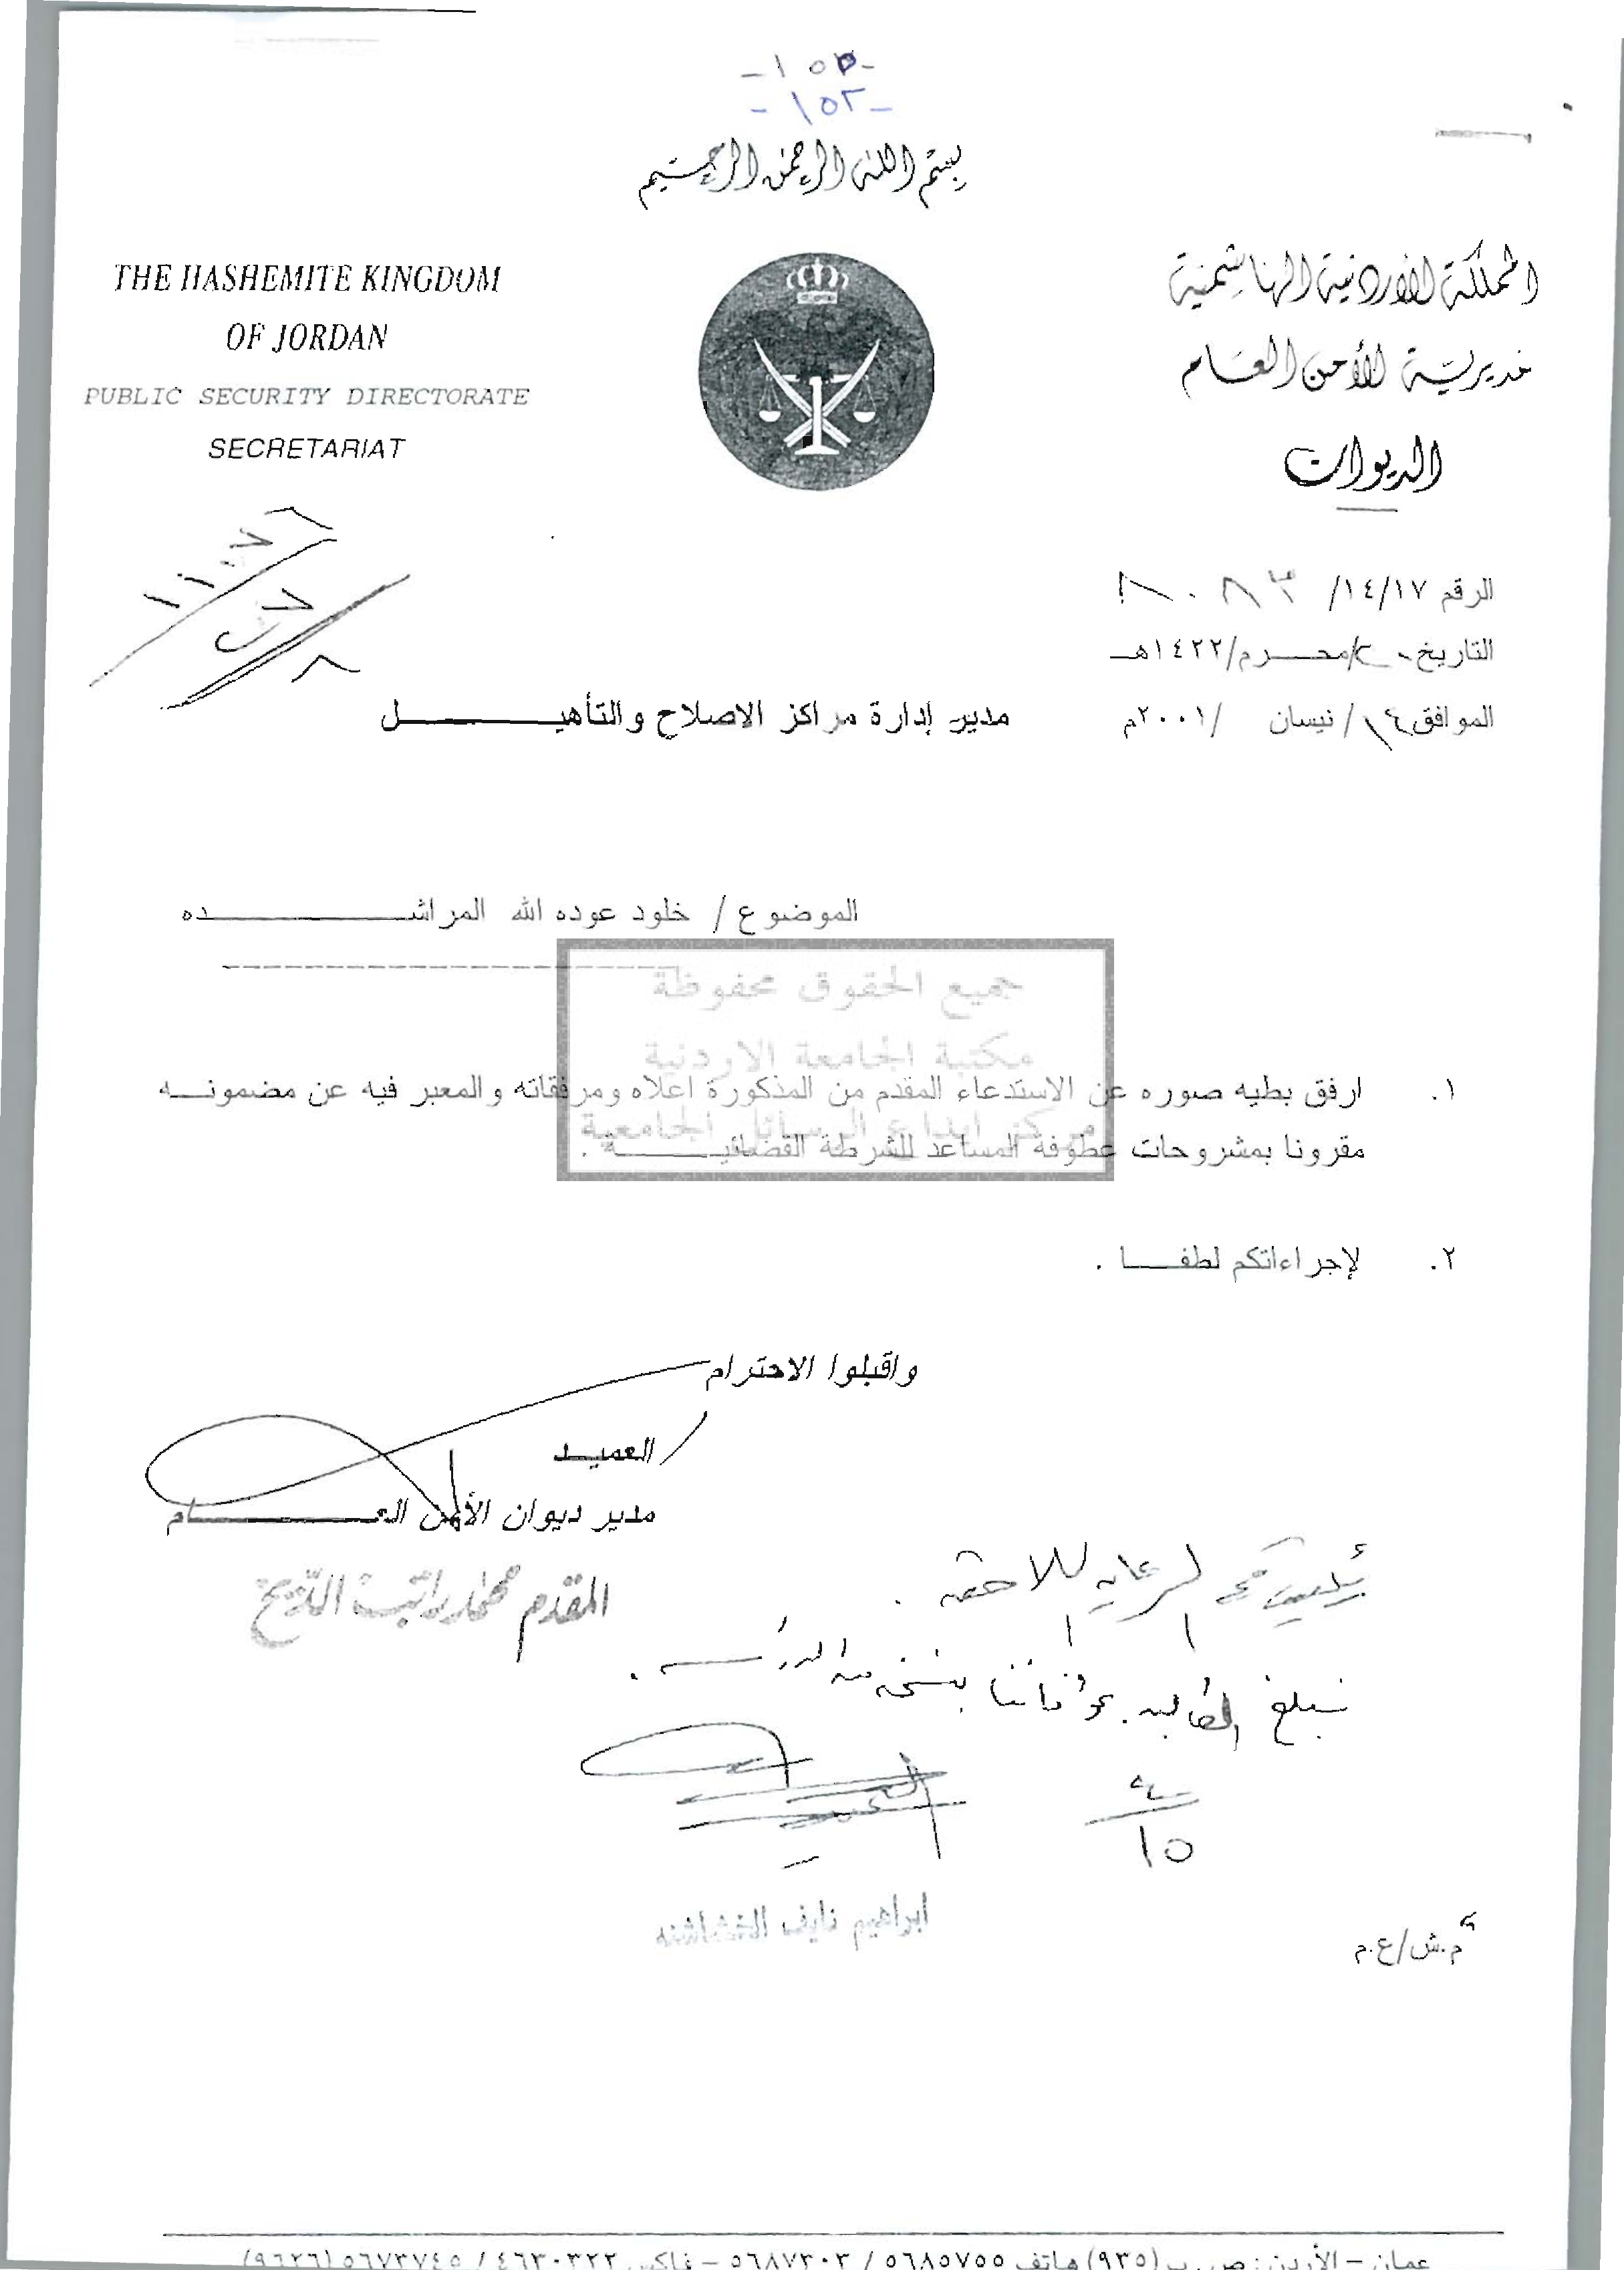 -١٥٢-
بسم الله الرحمن الرحيم
THE HASHEMITE KINGDOM
OF JORDAN
PUBLIC SECURITY DIRECTORATE
SECRETARIAT
المملكة الأردنية الهاشمية
مديرية الأمن العام
الديوان
الرقم ١٤/١٧/
التاريخ ٢٠/محـــرم/١٤٢٢هـ
الموافق ١٤/نيسان /٢٠٠١م
مدير إدارة مراكز الاصلاح والتأهيـــــل
الموضوع / خلود عوده الله المراشـــــده
جميع الحقوق محفوظة
مكتبة الجامعة الاردنية
مركز ايداع الرسائل الجامعية
١. ارفق بطيه صوره عن الاستدعاء المقدم من المذكورة اعلاه ومرفقاته والمعبر فيه عن مضمونـــه
مقرونا بمشروحات عطوفة المساعد للشرطة القضائيـــــة .
٢. لإجراءاتكم لطفـــا .
واقبلوا الاحترام
/العميـــد
مدير ديوان الأمن العـــــام
المقدم محمد راتب
الرعايه اللاحقه .
تبلغ الطالبه بنسخه من الدراسه .
٤
١٥
العميد
ابراهيم نايف الخشاشنه
م.ش/ع.م
عمان – الأردن : ص. ب (٩٣٥) هاتف ٥٦٨٥٧٥٥ / ٥٦٨٧٣٠٣ – فاكس ٤٦٣٠٣٢٢ / ٥٦٧٣٧٤٥ (٩٦٢٦)